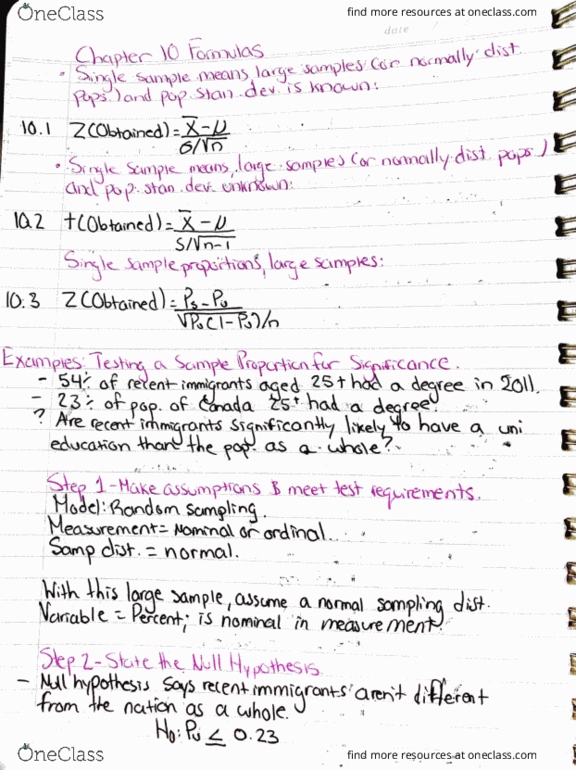 OneClass find more resources at oneclass.com
date
Chapter 10 Formulas
• Single sample means, large samples (or normally dist.
pops.) and pop. stan. dev. is known:
10.1 Z(Obtained) = X̄ - μ / σ/√n
• Single sample means, large samples (or normally dist. pops.)
and pop. stan. dev. unknown:
10.2 t(Obtained) = X̄ - μ / S/√n-1
Single sample proportions, large samples:
10.3 Z(Obtained) = Ps - Pu / √Pu(1-Pu)/n
Examples: Testing a Sample Proportion for Significance.
- 54% of recent immigrants aged 25+ had a degree in 2011.
- 23% of pop. of Canada 25+ had a degree.
? Are recent immigrants significantly likely to have a uni
education than the pop. as a whole?
Step 1 - Make assumptions & meet test requirements.
Model: Random sampling.
Measurement = Nominal or ordinal.
Samp dist. = normal.
With this large sample, assume a normal sampling dist.
Variable = Percent; is nominal in measurement.
Step 2 - State the Null Hypothesis
- Null hypothesis says recent immigrants aren't different
from the nation as a whole.
H₀: Pu ≤ 0.23
OneClass find more resources at oneclass.com